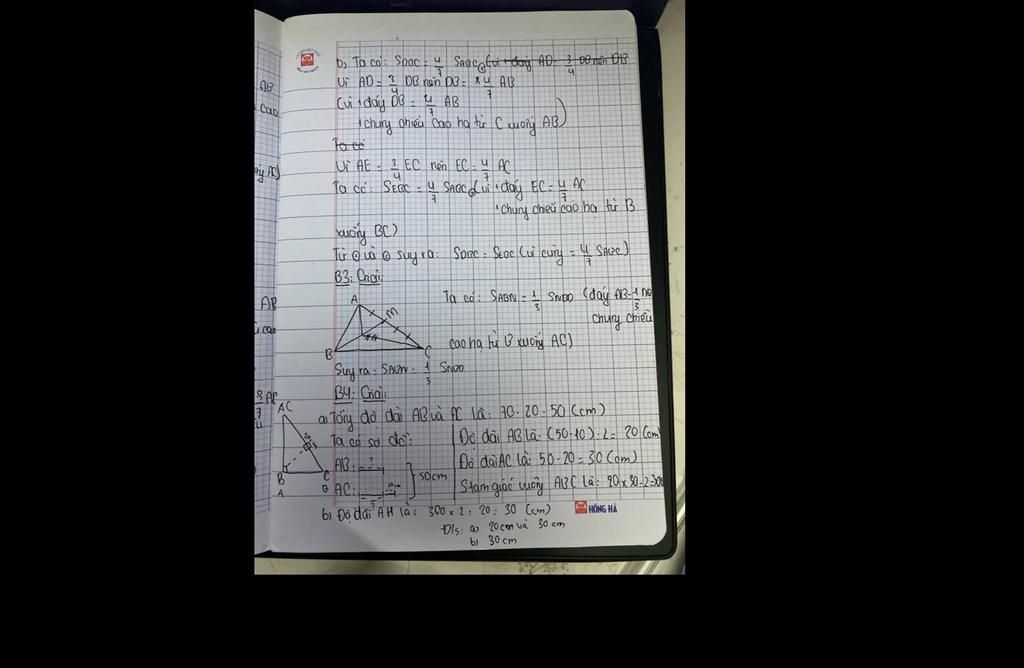 b, Ta có: SDBC = 4/7 SABC ① (vì + đáy AD = 3/4 DB nên DB
Vì AD = 3/4 DB nên DB = 4/7 AB
(vì + đáy DB = 4/7 AB
+ chung chiều cao hạ từ C xuống AB)
Ta có
Vì AE = 3/4 EC nên EC = 4/7 AC
Ta có: SEBC = 4/7 SABC ② (vì + đáy EC = 4/7 AC
+ chung chiều cao hạ từ B
xuống BC)
Từ ① và ② suy ra: SDBC = SEBC (vì cùng = 4/7 SABC)
B3: Giải:
A
M
B
C
Ta có: SABN = 1/3 (đáy AB = 1/3
chung chiều
cao hạ từ B xuống AC)
Suy ra: SABN = 1/3
B4: Giải:
a) Tổng độ dài AB và AC là: 70 - 20 = 50 (cm)
Ta có sơ đồ:
AB: ?
AC: ?
50cm
Độ dài AB là: (50-10) : 2 = 20 (cm)
Độ dài AC là: 50 - 20 = 30 (cm)
Stam giác vuông ABC là: 20 x 30 : 2 = 300
b) Độ dài AH là: 300 x 2 : 20 = 30 (cm)
Đ/s: a) 20cm và 30 cm
b) 30 cm
HỒNG HÀ
AB
cao
AB
cao
8/7 AC
A
C
B
C
B
A